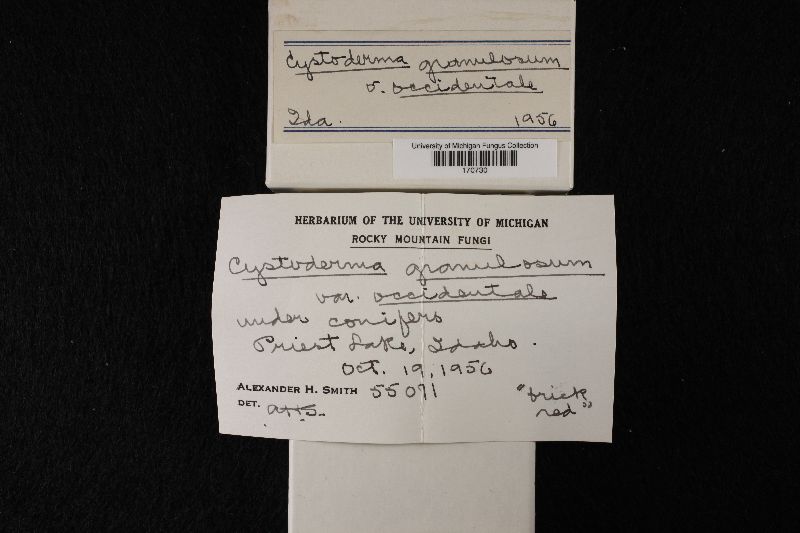 Cystoderma granulosum
v. occidentale
Ida. 1956
University of Michigan Fungus Collection
170730
HERBARIUM OF THE UNIVERSITY OF MICHIGAN
ROCKY MOUNTAIN FUNGI
Cystoderma granulosum
var. occidentale
under conifers
Priest Lake, Idaho.
Oct. 19, 1956
ALEXANDER H. SMITH 55071
DET. AHS. "brick
red"